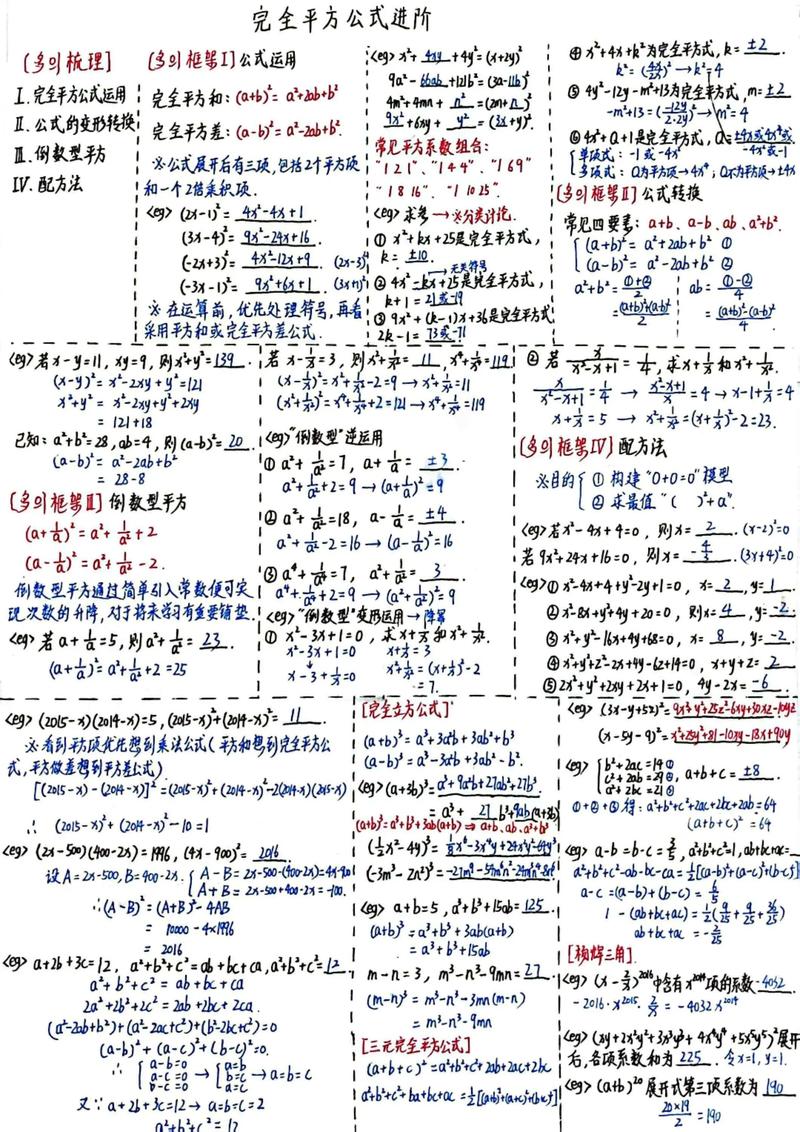 完全平方公式进阶
[多的梳理]
I. 完全平方公式运用
II. 公式的变形转换
III. 倒数型平方
IV. 配方法
[多的框架I] 公式运用
完全平方和: (a+b)² = a²+2ab+b²
完全平方差: (a-b)² = a²-2ab+b².
※公式展开后有三项,包括2个平方项
和一个2倍乘积项.
<eg> (2x-1)² = 4x²-4x+1.
(3x-4)² = 9x²-24x+16.
(-2x+3)² = 4x²-12x+9. (2x-3)²
(-3x-1)² = 9x²+6x+1. (3x+1)²
※在运算前,优先处理符号,再看
采用平方和或完全平方差公式.
<eg> x² + 4xy + 4y² = (x+2y)²
9a² - 66ab + 121b² = (3a-11b)²
4m² + 4mn + n² = (2m+n)²
9x² + 6xy + y² = (3x+y)².
常见平方系数组合:
"1 2 1"、"1 4 4"、"1 6 9"
"1 8 16"、"1 10 25".
<eg> 求参 → ※分类讨论.
① x²+kx+25是完全平方式,
k = ±10.
→无关符号
② 4x²-kx+25是完全平方式,
k+1 = 21或-19
③ 9x²+(k-1)x+36是完全平方式
2k-1 = 73或-71
④ x²+4x+k²为完全平方式, k = ±2.
k² = (4x/2x)² → k²=4
⑤ 4y²-12y-m²+13为完全平方式, m = ±2
-m²+13 = (-12y/2·2y)² → m²=4
⑥ 4x²+Q+1是完全平方式, Q = ±4x或4x⁴或-4x²或-1
单项式: -1或-4x²
多项式: Q为平方项→4x⁴; Q不为平方项→±4x
[多的框架II] 公式转换
常见四要素: a+b、a-b、ab、a²+b².
(a+b)² = a²+2ab+b² ①
(a-b)² = a²-2ab+b² ②
a²+b² = ①+②/2 ab = ①-②/4
= (a+b)²+(a-b)²/2 = (a+b)²-(a-b)²/4.
<eg> 若x-y=11, xy=9, 则x²+y² = 139.
(x-y)² = x²-2xy+y² = 121
x²+y² = x²-2xy+y²+2xy
= 121+18
已知: a²+b²=28, ab=4, 则(a-b)² = 20.
(a-b)² = a²-2ab+b²
= 28-8
[多的框架III] 倒数型平方
(a+1/a)² = a²+1/a²+2
(a-1/a)² = a²+1/a²-2.
倒数型平方通过简单引入常数便可实
现次数的升降,对于将来学习有重要铺垫.
<eg> 若a+1/a=5, 则a²+1/a² = 23.
(a+1/a)² = a²+1/a²+2 = 25
若x-1/x=3, 则x²+1/x² = 11, x⁴+1/x⁴ = 119
(x-1/x)² = x²+1/x²-2=9 → x²+1/x²=11
(x²+1/x²)² = x⁴+1/x⁴+2=121 → x⁴+1/x⁴=119
<eg>"倒数型"逆运用
① a²+1/a²=7, a+1/a = ±3.
a²+1/a²+2=9 → (a+1/a)²=9
② a²+1/a²=18, a-1/a = ±4.
a²+1/a²-2=16 → (a-1/a)²=16
③ a⁴+1/a⁴=7, a²+1/a² = 3.
a⁴+1/a⁴+2=9 → (a²+1/a²)²=9
<eg>"倒数型"变形运用→降幂
① x²-3x+1=0, 求x+1/x和x²+1/x².
x²-3x+1=0 x+1/x=3
↓ x²+1/x²=(x+1/x)²-2
x-3+1/x=0 =7.
② 若 x/x²-x+1 = 1/4, 求x+1/x和x²+1/x².
x/x²-x+1 = 1/4 → x²-x+1/x = 4 → x-1+1/x=4
x+1/x=5 → x²+1/x²=(x+1/x)²-2=23.
[多的框架IV] 配方法
※目的 ① 构建"0+0=0"模型
② 求最值"( )²+a".
<eg> 若x²-4x+4=0, 则x = 2. (x-2)²=0
若9x²+24x+16=0, 则x = -4/3. (3x+4)²=0
<eg>① x²-4x+4+y²-2y+1=0, x=2, y=1.
② x²-8x+y²+4y+20=0, 则x=4, y=-2.
③ x²+y²-16x+4y+68=0, x=8, y=-2.
④ x²+y²+z²-2x+4y-6z+14=0, x+y+z=2
⑤ 2x²+y²+2xy+2x+1=0, 4y-2x=-6.
<eg> (2015-x)(2014-x)=5, (2015-x)²+(2014-x)² = 11.
※看到平方项优先想到乘法公式(平方和想到完全平方公
式,平方做差想到平方差公式)
[(2015-x)-(2014-x)]² = (2015-x)²+(2014-x)²-2(2014-x)(2015-x)
∴ (2015-x)²+(2014-x)²-10=1
<eg> (2x-500)(400-2x)=1996, (4x-900)² = 2016.
设A=2x-500, B=400-2x. A-B=2x-500-(400-2x)=4x-900
A+B=2x-500+400-2x=-100.
∴(A-B)² = (A+B)²-4AB
= 10000-4×1996
= 2016
<eg> a+2b+3c=12, a²+b²+c²=ab+bc+ca, a²+b²+c²=12
a²+b²+c² = ab+bc+ca
2a²+2b²+2c² = 2ab+2bc+2ca.
(a²-2ab+b²)+(a²-2ac+c²)+(b²-2bc+c²)=0
(a-b)²+(a-c)²+(b-c)²=0.
∴ a-b=0 a=b
a-c=0 → b=c → a=b=c
b-c=0 a=c
又∵ a+2b+3c=12 → a=b=c=2
a²+b²+c²=12
[完全立方公式]
(a+b)³ = a³+3a²b+3ab²+b³
(a-b)³ = a³-3a²b+3ab²-b³.
<eg> (a+3b)³ = a³+9a²b+27ab²+27b³.
= a³+ 27 b³+9ab(a+3b)
(a+b)³=a³+b³+3ab(a+b) ⇒ a+b、ab、a³+b³
(½x²-4y)³ = ⅛x⁶-3x⁴y+24x²y²-64y³
(-3m³-2n²)³ = -27m⁹-54m⁶n²-36m³n⁴-8n⁶
<eg> a+b=5, a³+b³+15ab = 125.
(a+b)³ = a³+b³+3ab(a+b)
= a³+b³+15ab
m-n=3, m³-n³-9mn = 27.
(m-n)³ = m³-n³-3mn(m-n)
= m³-n³-9mn
[三元完全平方公式]
(a+b+c)² = a²+b²+c²+2ab+2ac+2bc
a²+b²+c²+ba+bc+ac = ½[(a+b)²+(a+c)²+(b+c)²]
<eg> (3x-y+5z)² = 9x²+y²+25z²-6xy+30xz-10yz
(x-5y-9)² = x²+25y²+81-10xy-18x+90y
<eg> b²+2ac=14①
c²+2ab=29②, a+b+c = ±8.
a²+2bc=21③
①+②+③得: a²+b²+c²+2ac+2bc+2ab=64
(a+b+c)²=64
<eg> a-b=b-c=3/5, a²+b²+c²=1, ab+bc+ac=
a²+b²+c²-ab-bc-ca=½[(a-b)²+(a-c)²+(b-c)²]
a-c=(a-b)+(b-c)=6/5
1-(ab+bc+ac)=½(9/25+9/25+36/25)
ab+bc+ac=-2/25
[杨辉三角].
<eg> (x-2/x)²⁰¹⁶中含有x²⁰¹⁴项的系数 -4032
-2016·x²⁰¹⁵·2/x = -4032x²⁰¹⁴
<eg> (xy+2x²y²+3x³y³+4x⁴y⁴+5x⁵y⁵)²展开
后,各项系数和为 225. 令x=1, y=1.
<eg> (a+b)²⁰展开式第三项系数为 190
20×19/2 = 190